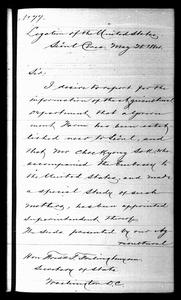 No 177.
Legation of the United States
Seoul Corea May 28 1884.
Sir:
I desire to report for
the information of the Agricultural
Department, that a govern-
ment Farm has been estab-
lished near to Seoul, and
that Mr Choe Kyung Sok, who
accompanied the Embassy to
the United States, and made
a special study of such
matters, has been appointed
Superintendent thereof.
The Seeds presented by our Ag-
ricultural
Hon Fredk. T. Frelinghuysen
Secretary of State
Washington D.C.